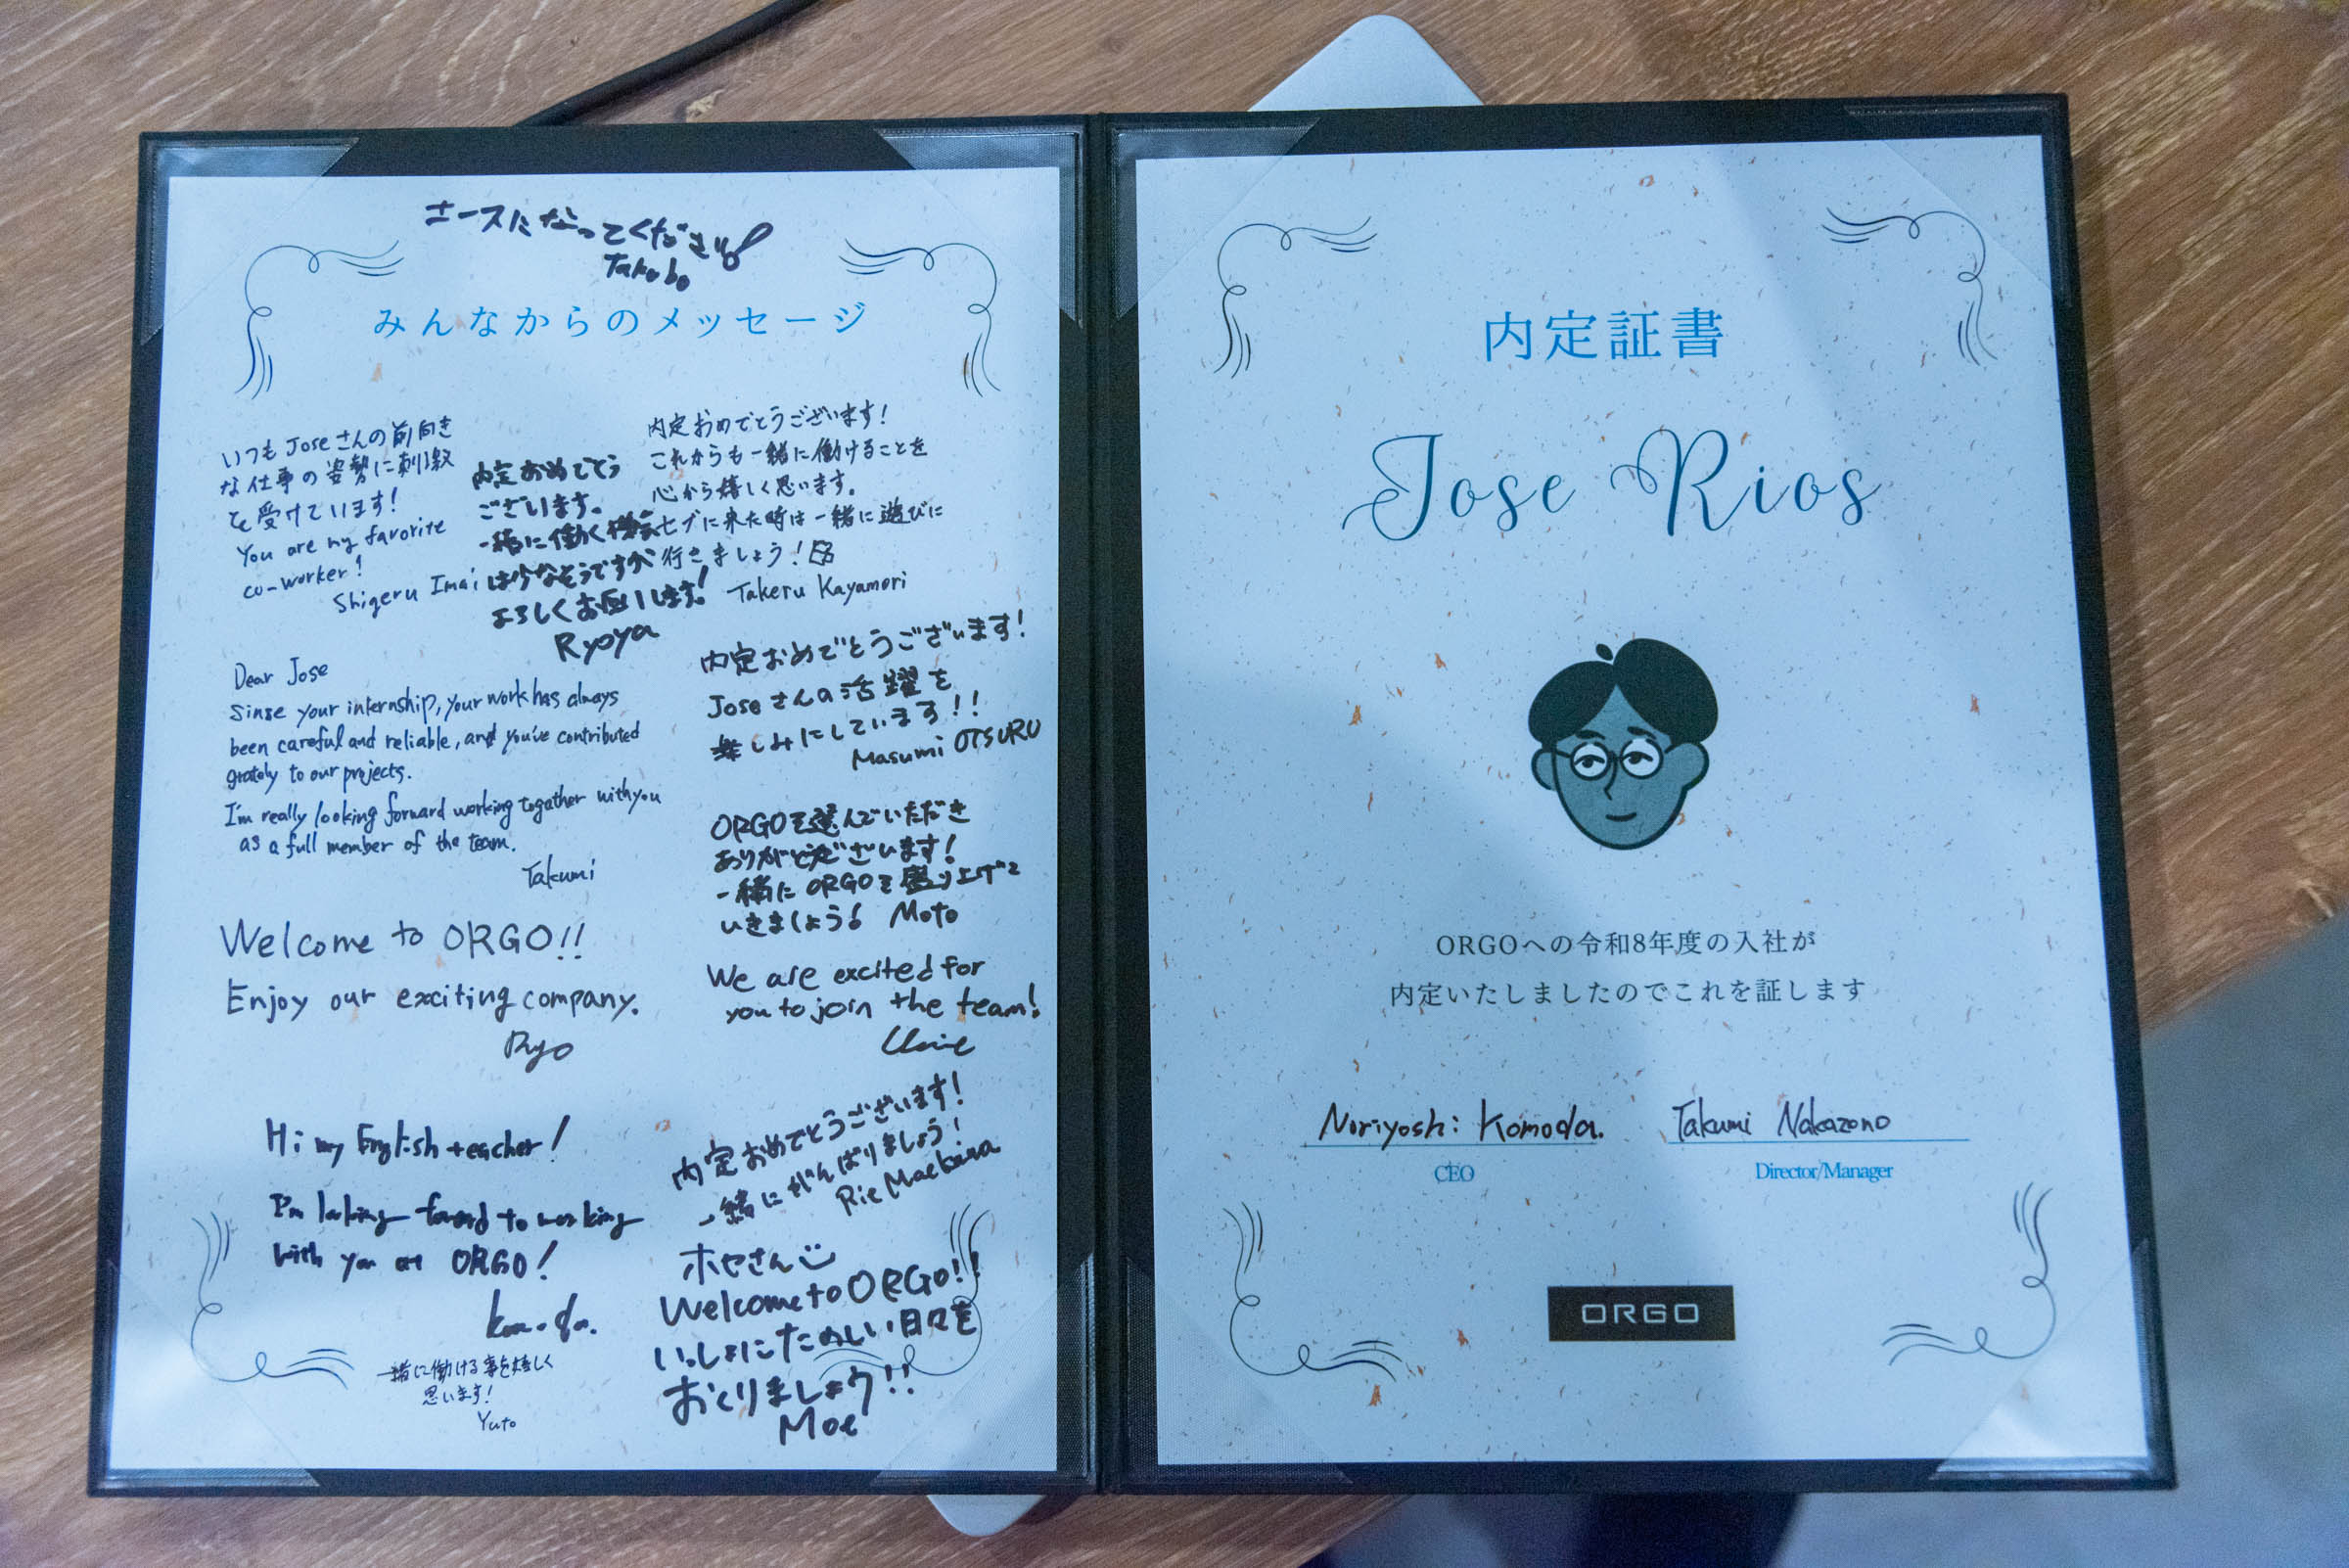 エースになってください!
Takobo
みんなからのメッセージ
いつもJoseさんの前向き
な仕事の姿勢に刺激
を受けています!
You are my favorite
co-worker!
Shigeru Imai
内定おめでとう
ございます。
一緒に働く機会
は少なそうですが
よろしくお願いします!
Ryoya
内定おめでとうございます!
これからも一緒に働けることを
心から嬉しく思います。
セブに来た時は一緒に遊びに
行きましょう!
Takeru Kayamori
Dear Jose
Sinse your internship, your work has always
been careful and reliable, and you've contributed
grately to our projects.
I'm really looking forward working together with you
as a full member of the team.
Takumi
内定おめでとうございます!
Joseさんの活躍を
楽しみにしています!!
Masumi OTSURU
ORGOを選んでいただき
ありがとうございます!
一緒にORGOを盛り上げて
いきましょう! Moto
Welcome to ORGO!!
Enjoy our exciting company.
Ryo
We are excited for
you to join the team!
Hi my English teacher!
I'm looking forward to working
with you at ORGO!
内定おめでとうございます!
一緒にがんばりましょう!
Rie Maehara
一緒に働ける事を嬉しく
思います!
Yuto
ホセさん
Welcome to ORGO!!
いっしょにたのしい日々を
おくりましょう!!
Moe
内定証書
Jose Rios
ORGOへの令和8年度の入社が
内定いたしましたのでこれを証します
Noriyoshi Komoda. Takumi Nakazono
CEO Director/Manager
ORGO